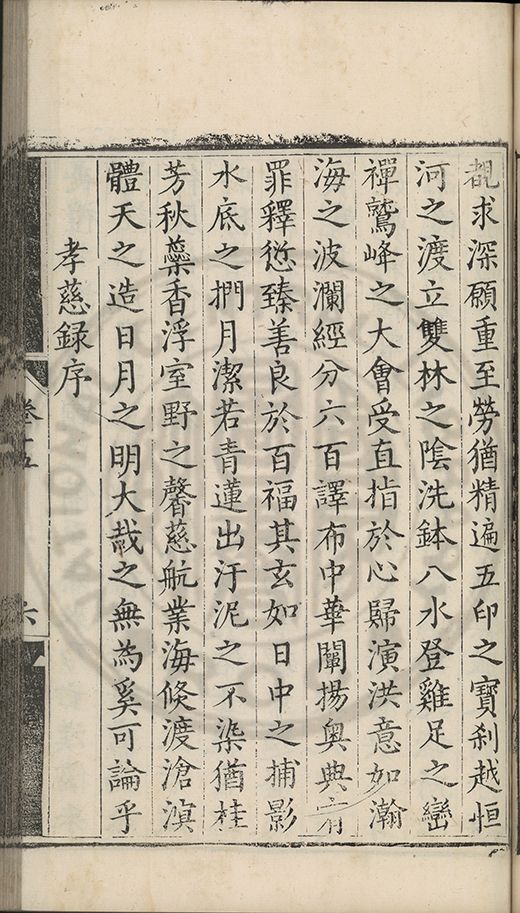 覩求深願重至勞猶精遍五印之寶刹越恒
河之渡立雙林之陰洗鉢八水登雞足之巒
禪鷲峰之大會受直指於心歸演洪意如瀚
海之波瀾經分六百譯布中華闡揚奥典宥
罪釋愆臻善良於百福其玄如日中之捕影
水底之捫月潔若青蓮出汙泥之不染猶桂
芳秋蘂香浮室野之馨慈航業海倐渡滄溟
體天之造日月之明大哉之無為奚可論乎
孝慈録序
卷十五
六